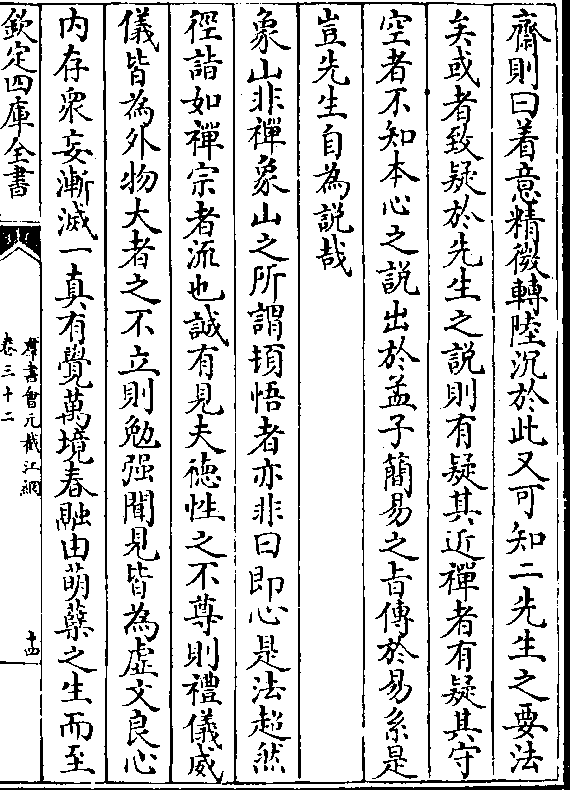 齋則曰着意精微轉陸沉於此又可知二先生之要法
矣或者致疑於先生之説則有疑其近禪者有疑其守
空者不知本心之説出於孟子簡易之旨傳於易系是
豈先生自為説哉
象山非禪象山之所謂頓悟者亦非曰即心是法超然
徑詣如禪宗者流也誠有見夫德性之不尊則禮儀威
儀皆為外物大者之不立則勉强聞見皆為虛文良心
内存衆妄漸滅一真有覺萬境春融由萌蘖之生而至
欽定四庫全書
羣書會元截江網
卷三十二
十四